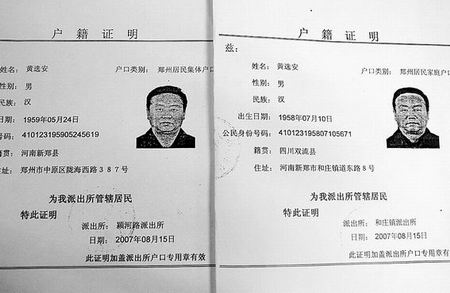 户籍证明
姓名: 黄选安 户口类别: 郑州居民集体户口
性别: 男
民族: 汉
日期: 1959年05月24日
号码: 410123195905245619
籍贯: 河南新郑县
住址: 郑州市中原区陇海西路387号
为我派出所管辖居民
特此证明
派出所: 颍河路派出所
日期: 2007年08月15日
此证明加盖派出所户口专用章有效
户籍证明
兹:
姓名: 黄选安 户口类别: 郑州居民家庭户口
性别: 男
民族: 汉
出生日期: 1958年07月10日
公民身份号码: 410123195807105671
籍贯: 四川双流县
住址: 河南新郑市和庄镇道东路8号
为我派出所管辖居民
特此证明
派出所: 和庄镇派出所
日期: 2007年08月15日
此证明加盖派出所户口专用章有效